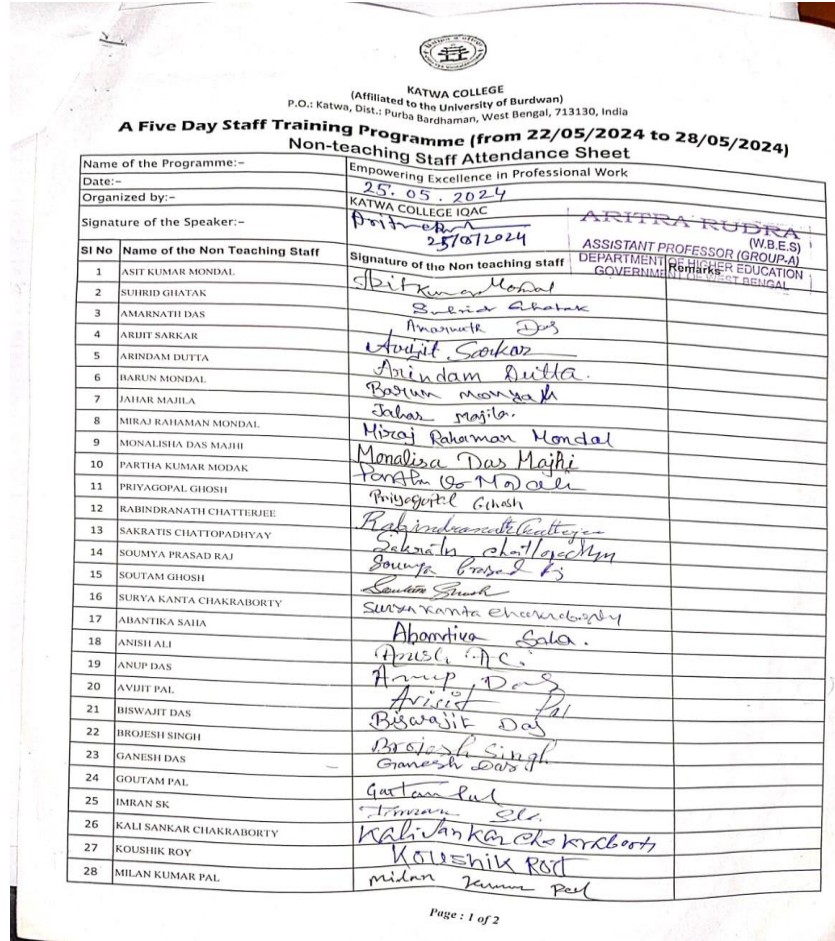 KATWA COLLEGE
(Affiliated to the University of Burdwan)
P.O.: Katwa, Dist.: Purba Bardhaman, West Bengal, 713130, India
A Five Day Staff Training Programme (from 22/05/2024 to 28/05/2024)
Non-teaching Staff Attendance Sheet
Name of the Programme:- Empowering Excellence in Professional Work
Date:- 25.05.2024
Organized by:- KATWA COLLEGE IQAC
Signature of the Speaker:- 25/05/2024
ARITRA RUDRA
(W.B.E.S)
ASSISTANT PROFESSOR (GROUP-A)
DEPARTMENT OF HIGHER EDUCATION
GOVERNMENT OF WEST BENGAL
Sl No Name of the Non Teaching Staff Signature of the Non teaching staff Remarks
1 ASIT KUMAR MONDAL Asit Kumar Mondal
2 SUHRID GHATAK Suhrid Ghatak
3 AMARNATH DAS Amarnath Das
4 ARIJIT SARKAR Arijit Sarkar
5 ARINDAM DUTTA Arindam Dutta.
6 BARUN MONDAL Barun Mondal
7 JAHAR MAJILA Jahar Majila.
8 MIRAJ RAHAMAN MONDAL Miraj Rahaman Mondal
9 MONALISHA DAS MAJHI Monalisa Das Majhi
10 PARTHA KUMAR MODAK
11 PRIYAGOPAL GHOSH Priyagopal Ghosh
12 RABINDRANATH CHATTERJEE Rabindranath Chatterjee
13 SAKRATIS CHATTOPADHYAY
14 SOUMYA PRASAD RAJ Soumya Prasad Raj
15 SOUTAM GHOSH Soutam Ghosh
16 SURYA KANTA CHAKRABORTY Surya Kanta Chakraborty
17 ABANTIKA SAHA Abantika Saha.
18 ANISH ALI
19 ANUP DAS Anup Das
20 AVIJIT PAL Avijit Pal
21 BISWAJIT DAS Biswajit Das
22 BROJESH SINGH Brojesh Singh
23 GANESH DAS Ganesh Das
24 GOUTAM PAL Goutam Pal
25 IMRAN SK Imran Sk.
26 KALI SANKAR CHAKRABORTY Kali Sankar Chakraborty
27 KOUSHIK ROY Koushik Roy
28 MILAN KUMAR PAL Milan Kumar Pal
Page : 1 of 2